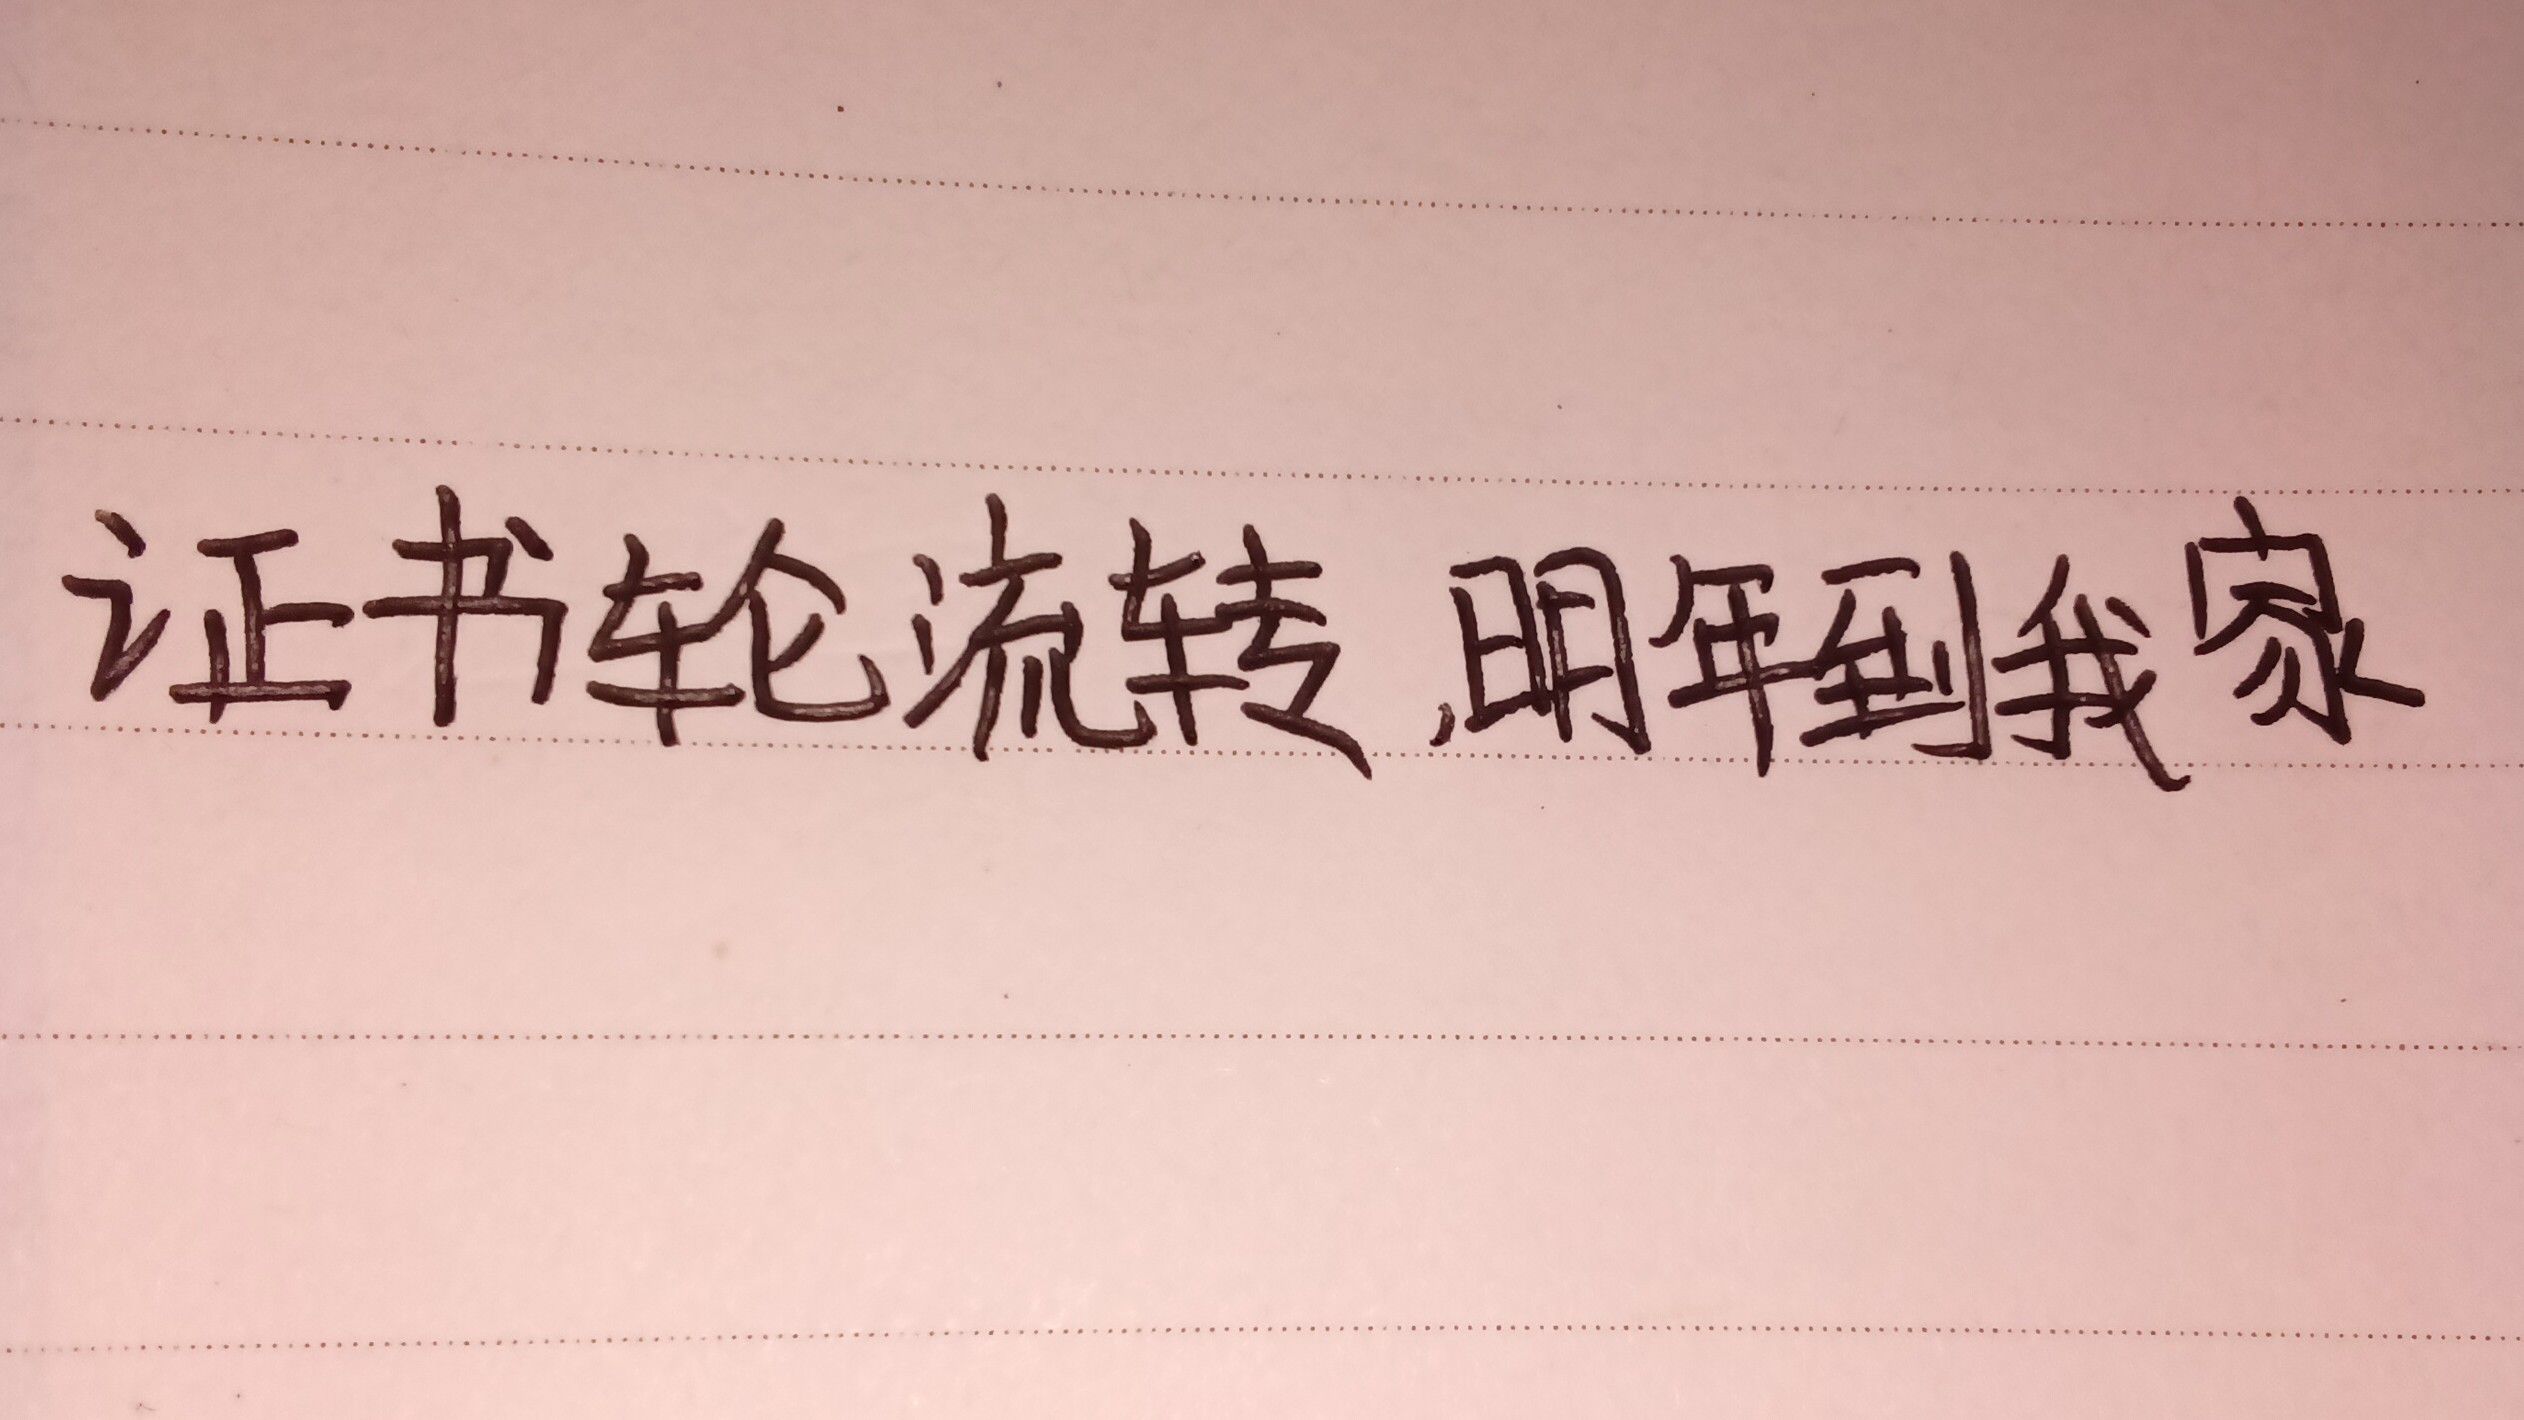 证书轮流转,明年到我家